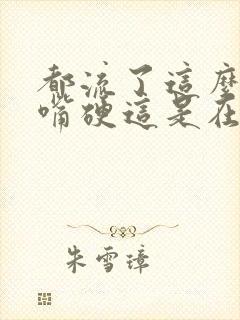 都流了這麼
嘴硬這是在
朱雪璋